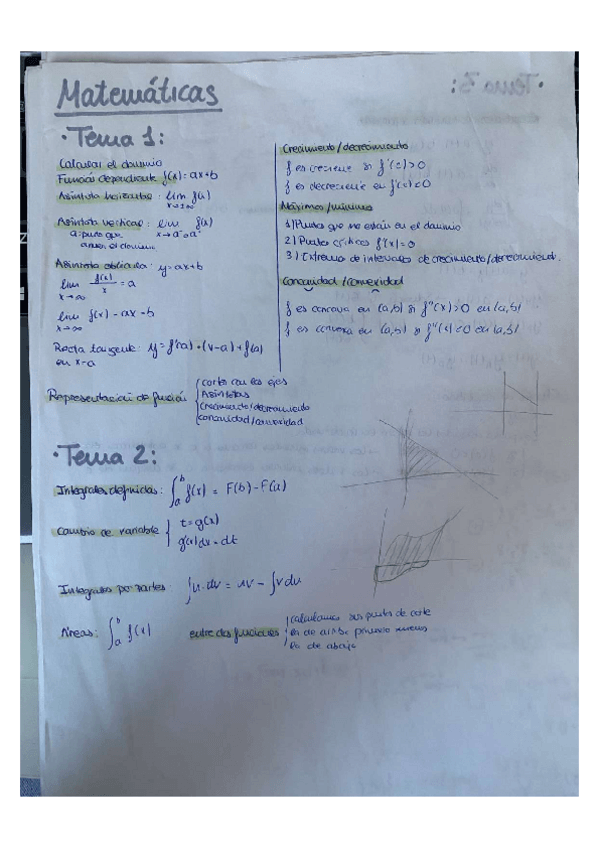 Matemáticas
· Tema 1:
Calcular el dominio
Función dependiente f(x) = ax+b
Asíntota horizontal : lim f(x)
x→±∞
Asíntota vertical : lim f(x)
a: punto que x→a⁺ o a⁻
anula el dominio
Asíntota oblicua : y = ax+b
lim f(x)/x = a
x→∞
lim f(x) - ax = b
x→∞
Recta tangente : y = f'(a) · (x-a) + f(a)
en x=a
Crecimiento/decrecimiento
f es creciente si f'(c) > 0
f es decreciente en f'(c) < 0
Máximos/mínimos
1) Puntos que no están en el dominio
2) Puntos críticos f'(x) = 0
3) Extremos de intervalos de crecimiento/decrecimiento.
Concavidad/convexidad
f es cóncava en (a,b) si f''(x) > 0 en (a,b)
f es convexa en (a,b) si f''(x) < 0 en (a,b)
Representación de función
corte con los ejes
Asíntotas
Crecimiento/decrecimiento
Concavidad/convexidad
· Tema 2:
Integrales definidas : ∫ₐᵇ f(x) = F(b) - F(a)
Cambio de variable
t = g(x)
g'(x) dx = dt
Integrales por partes : ∫ u · dv = uv - ∫ v du
Áreas : ∫ₐᵇ f(x)
entre dos funciones
calculamos sus puntos de corte
la de arriba primero menos
la de abajo
· Tema 3: